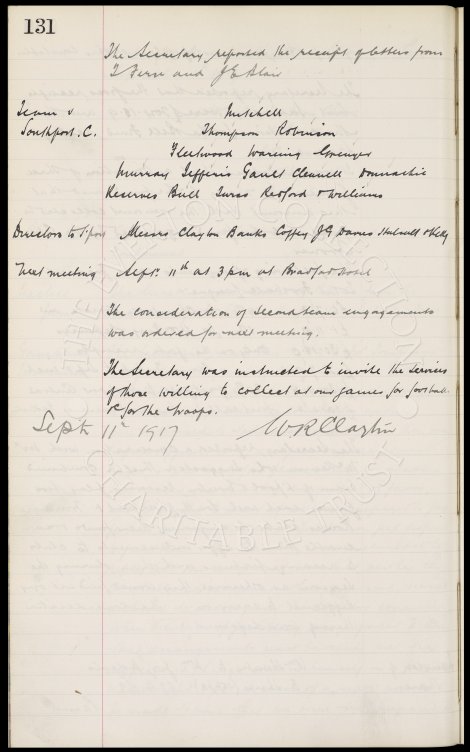 131
The Secretary reported the receipt of letters from
T Fern and J E Blair
Team v Mitchell
Southport. C. Thompson Robinson
Fleetwood Wareing Grenyer
Murray Jefferis Gault Clennell Donnachie
Reserves Bull Turss Rexford & Williams
Directors to S'port Messrs Clayton Banks Coffey J G Davies & Kelly
Next meeting Sept. 11th at 3 pm at Bradford Hotel
The consideration of second team engagements
was ordered for next meeting.
The Secretary was instructed to invite the services
of those willing to collect at our games for footballs
&c for the troops.
Sept 11th 1917 W R Clayton
THE EVERTON COLLECTION
CHARITABLE TRUST